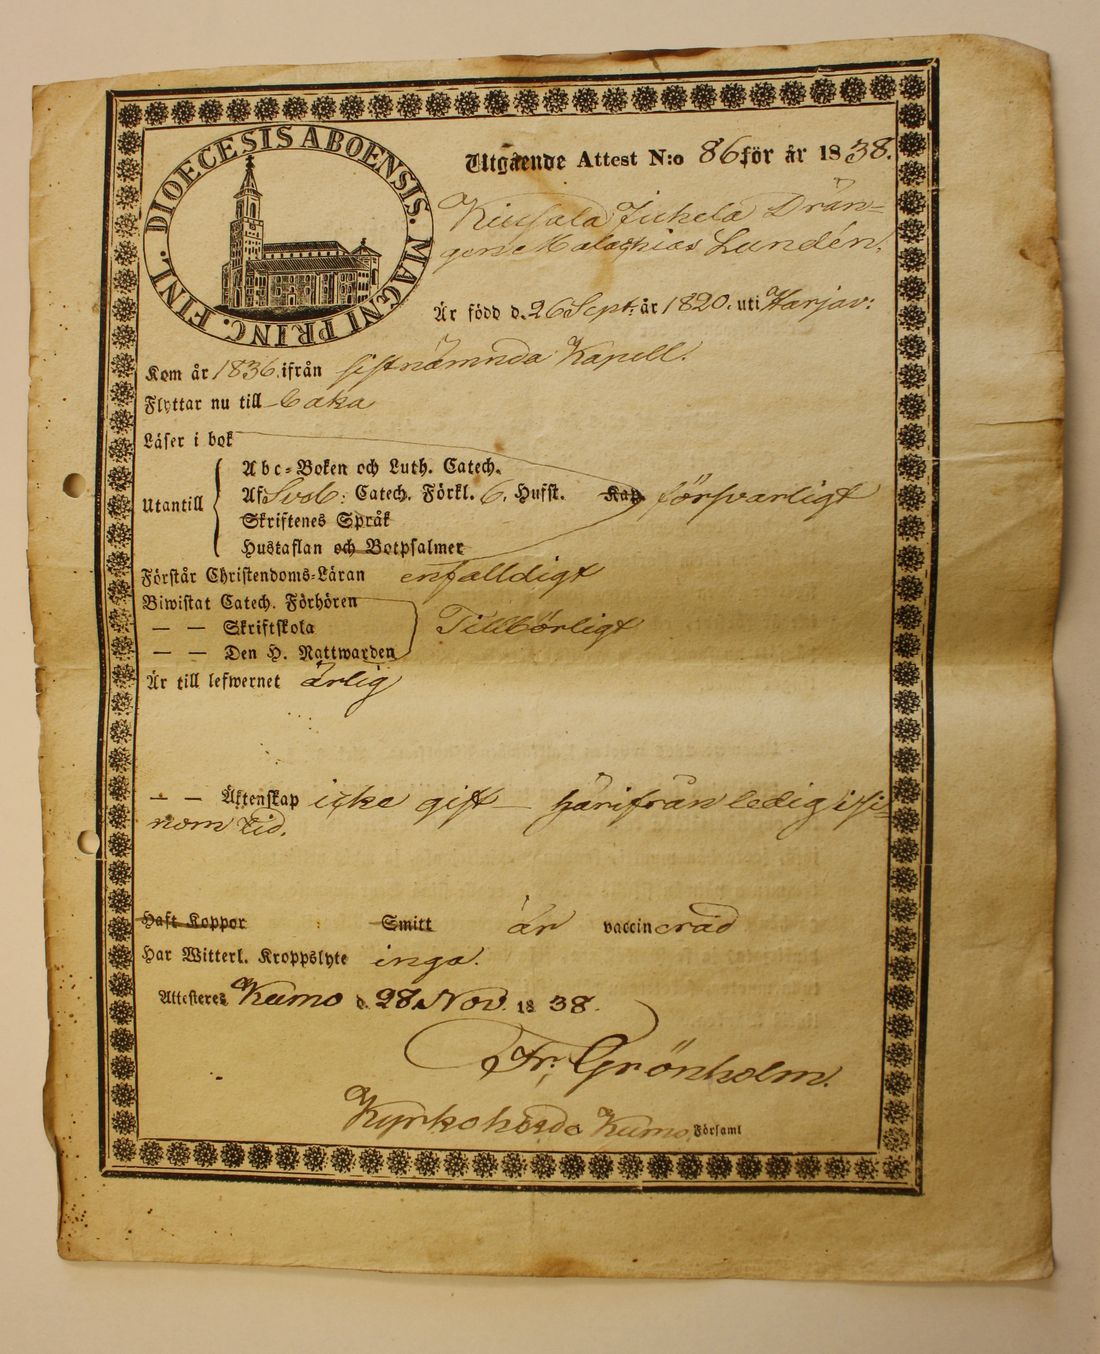 DIOECESIS ABOENSIS. MAGNI PRINC. FINL.
Utgående Attest N:o 86 för år 1838.
Kiusala Jukela Drän-
gen Malachias Lundén.
Är född d. 26 Sept. år 1820. uti Harjav:
Kom år 1836. ifrån sistnämnda Kapell.
Flyttar nu till
Läser i bok
Abc-Boken och Luth. Catech.
Utantill Af Sveb: Catech. Förkl. 6. Hufst. Kap. försvarligt
Skriftenes Språk
Hustaflan och Botpsalmer
Förstår Christendoms-Läran enfalldigt
Biwistat Catech. Förhören
— — Skriftskola Tillbörligt
— — Den H. Nattwarden
Är till lefwernet ärlig
— — Äktenskap icke gift härifrån ledig i si-
nom tid.
Haft Koppor Smitt är vaccinerad
Har Witterl. Kroppslyte inga.
Attesteres Kumo d. 28 Nov. 1838.
Fr. Grönholm.
Kyrkoherde Kumo Församl